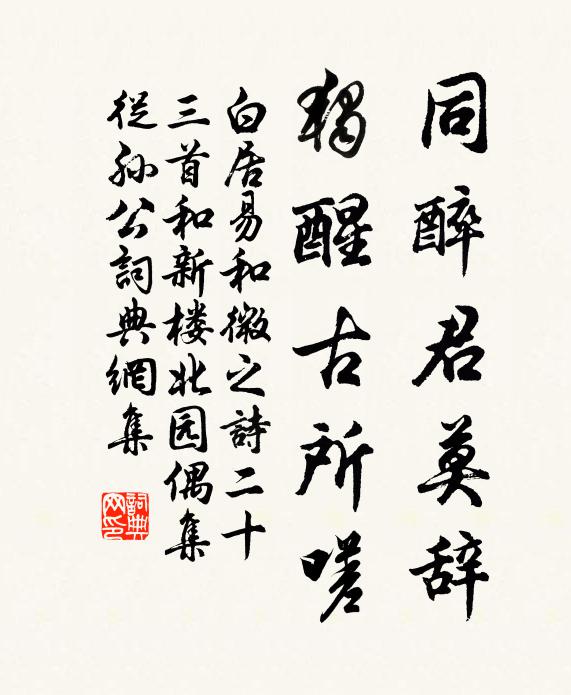 同醉君莫辞
独醒古所嗟
白居易和微之詩二十
三首和新楼北园偶集
從孙公詞典網集
詞典
网印